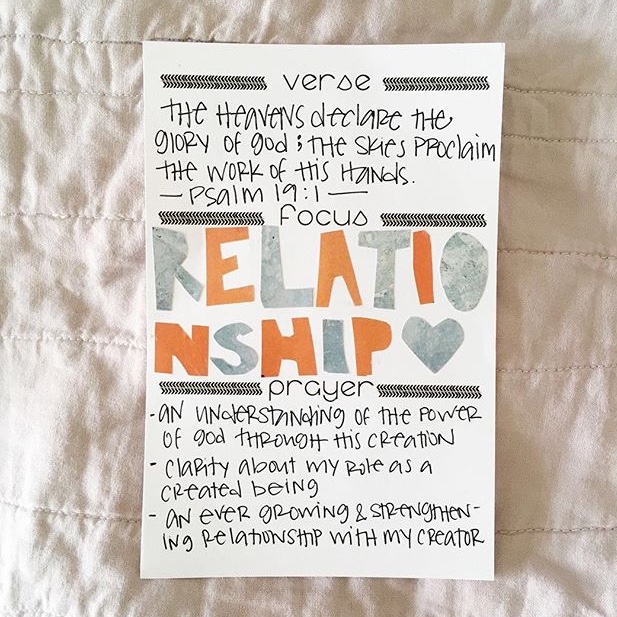 verse
THE HEAVENS declare THE
glory of god & THE SKIES Proclaim
THE WORK OF HIS HANDS.
— Psalm 19:1 —
focus
RELATIO
NSHIP
prayer
- AN UNDERSTANDING OF THE POWER
OF god THROUGH HIS CREATION
- Clarity about my Role as a
created being
- AN EVER GROWING & STRENGTHEN-
ING RELATIONSHIP WITH MY CREATOR